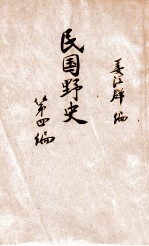 姜泣群 编
民国野史
第四编